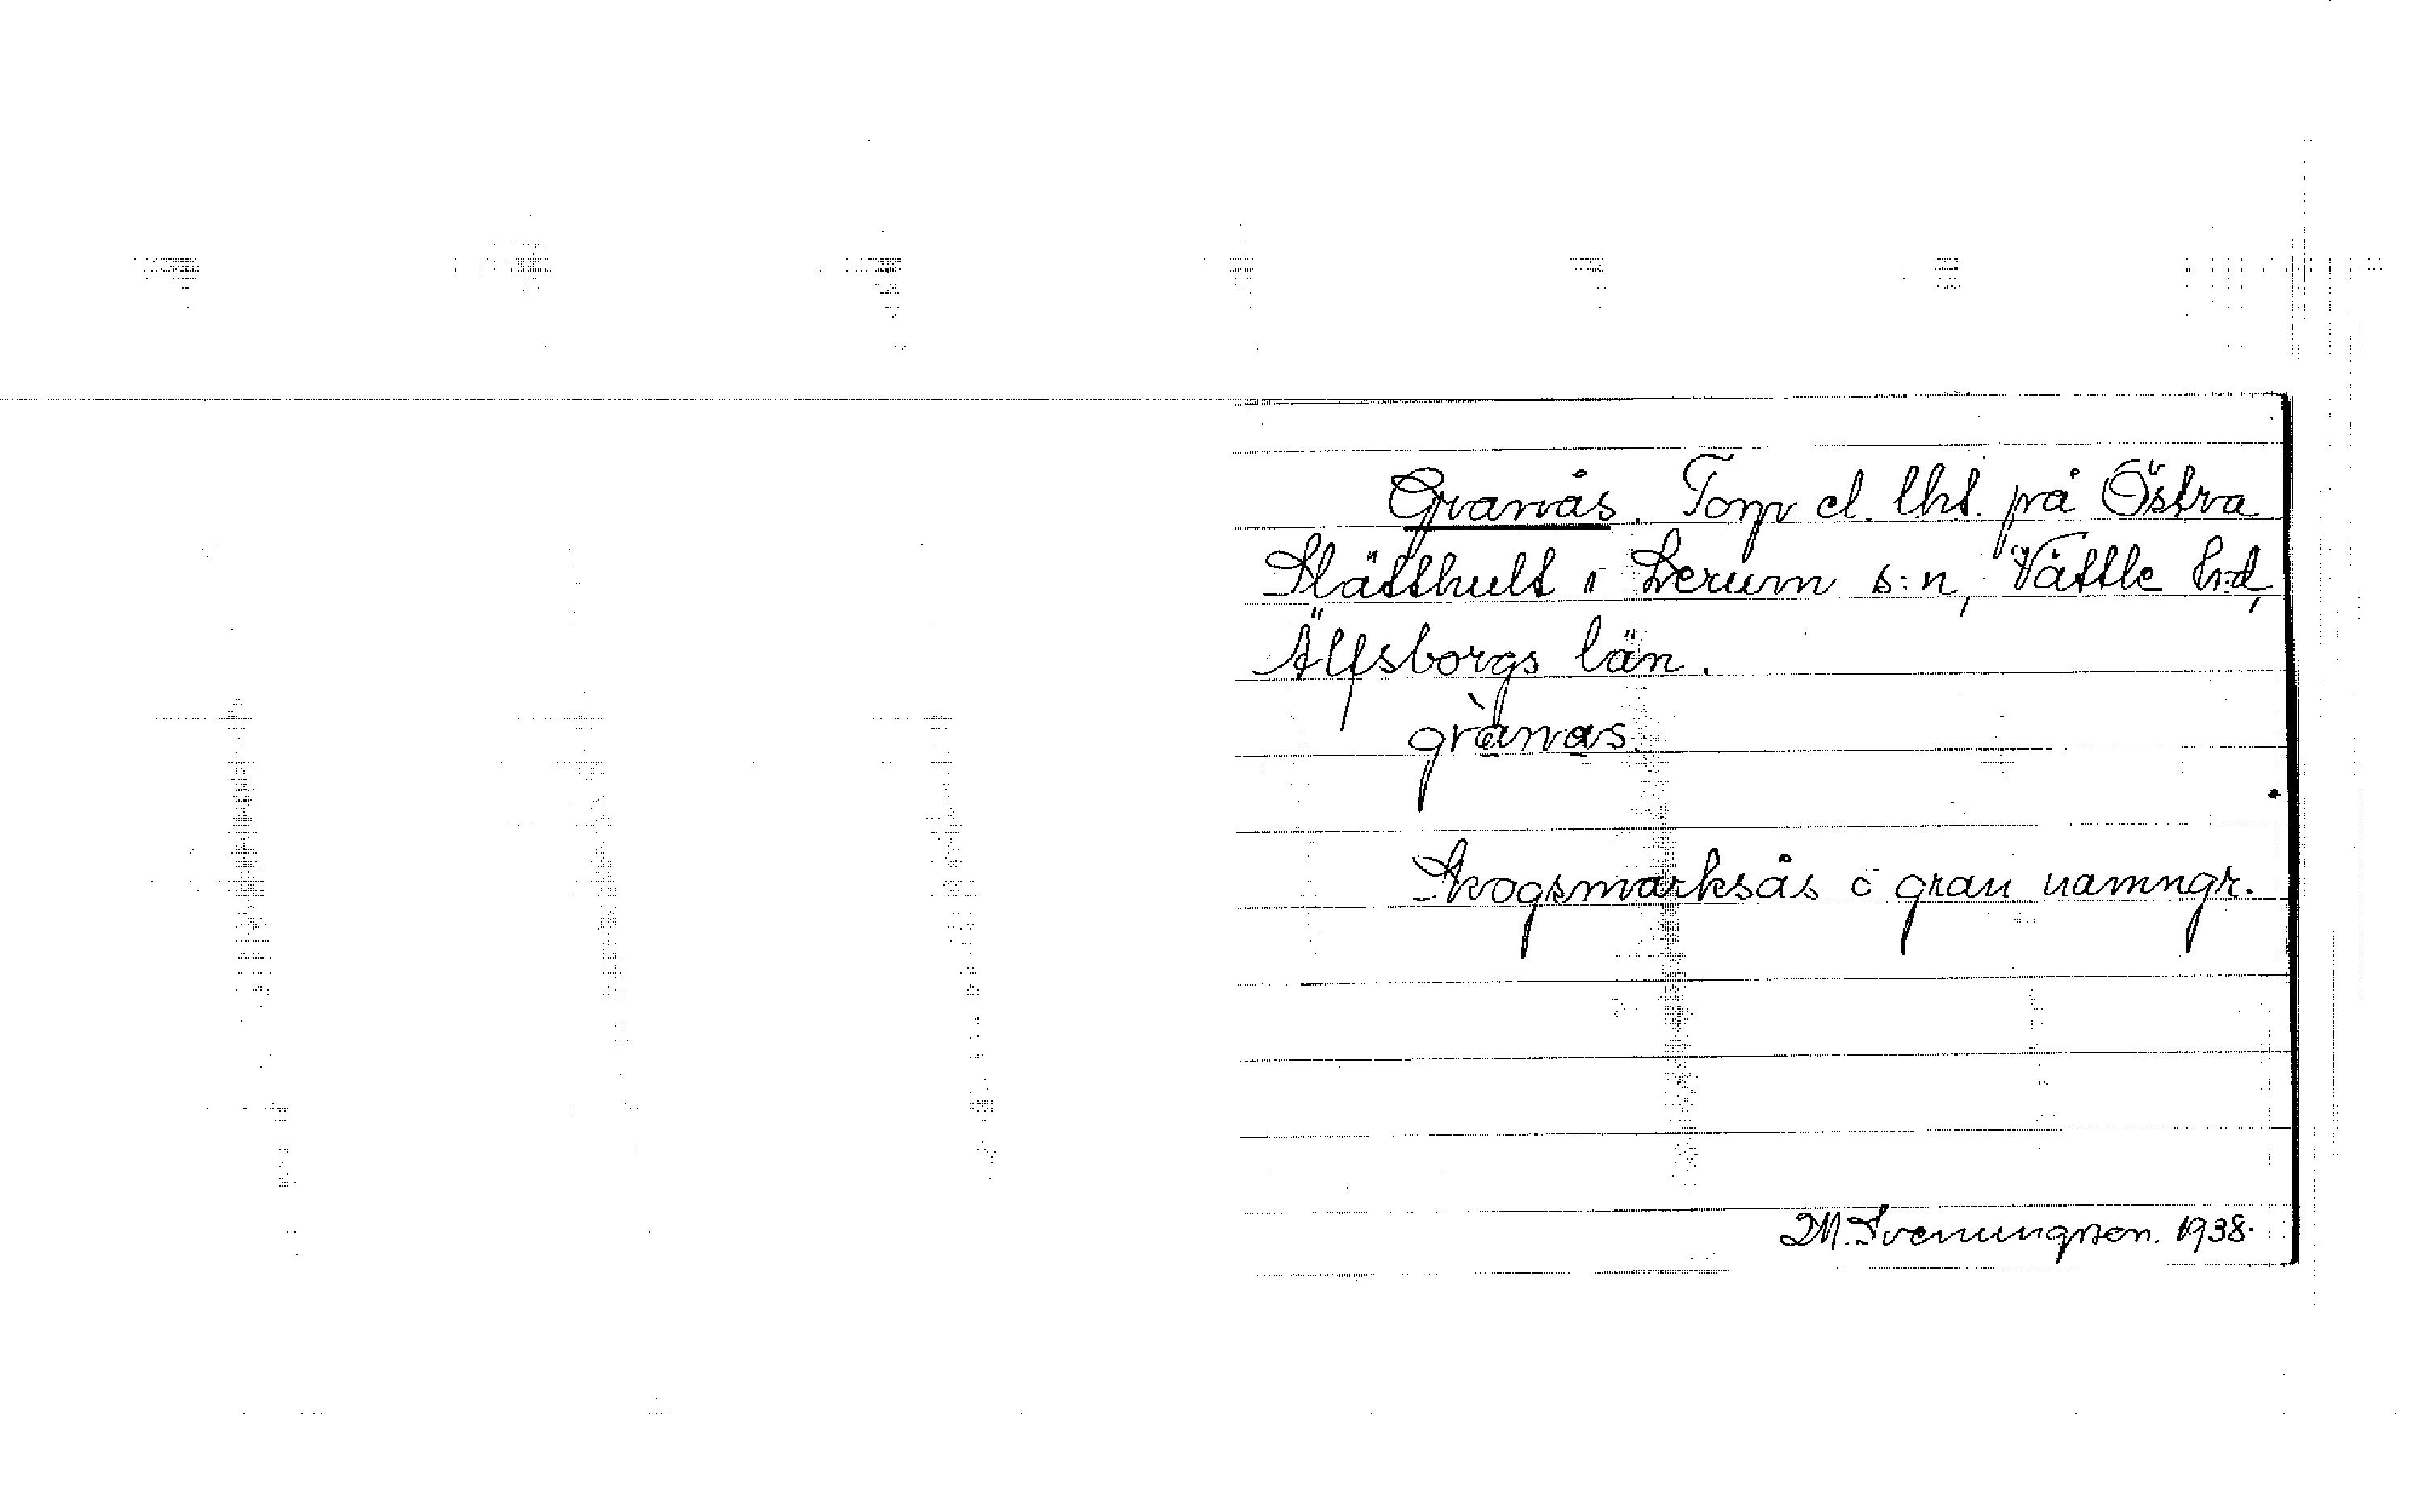 Granås. Torp el. lht. på Östra
Slätthult i Lerum s:n, Vättle h:d,
Älfsborgs län.
grànas.
Skogsmarksås o gran namngr.
M. Svenungson. 1938.